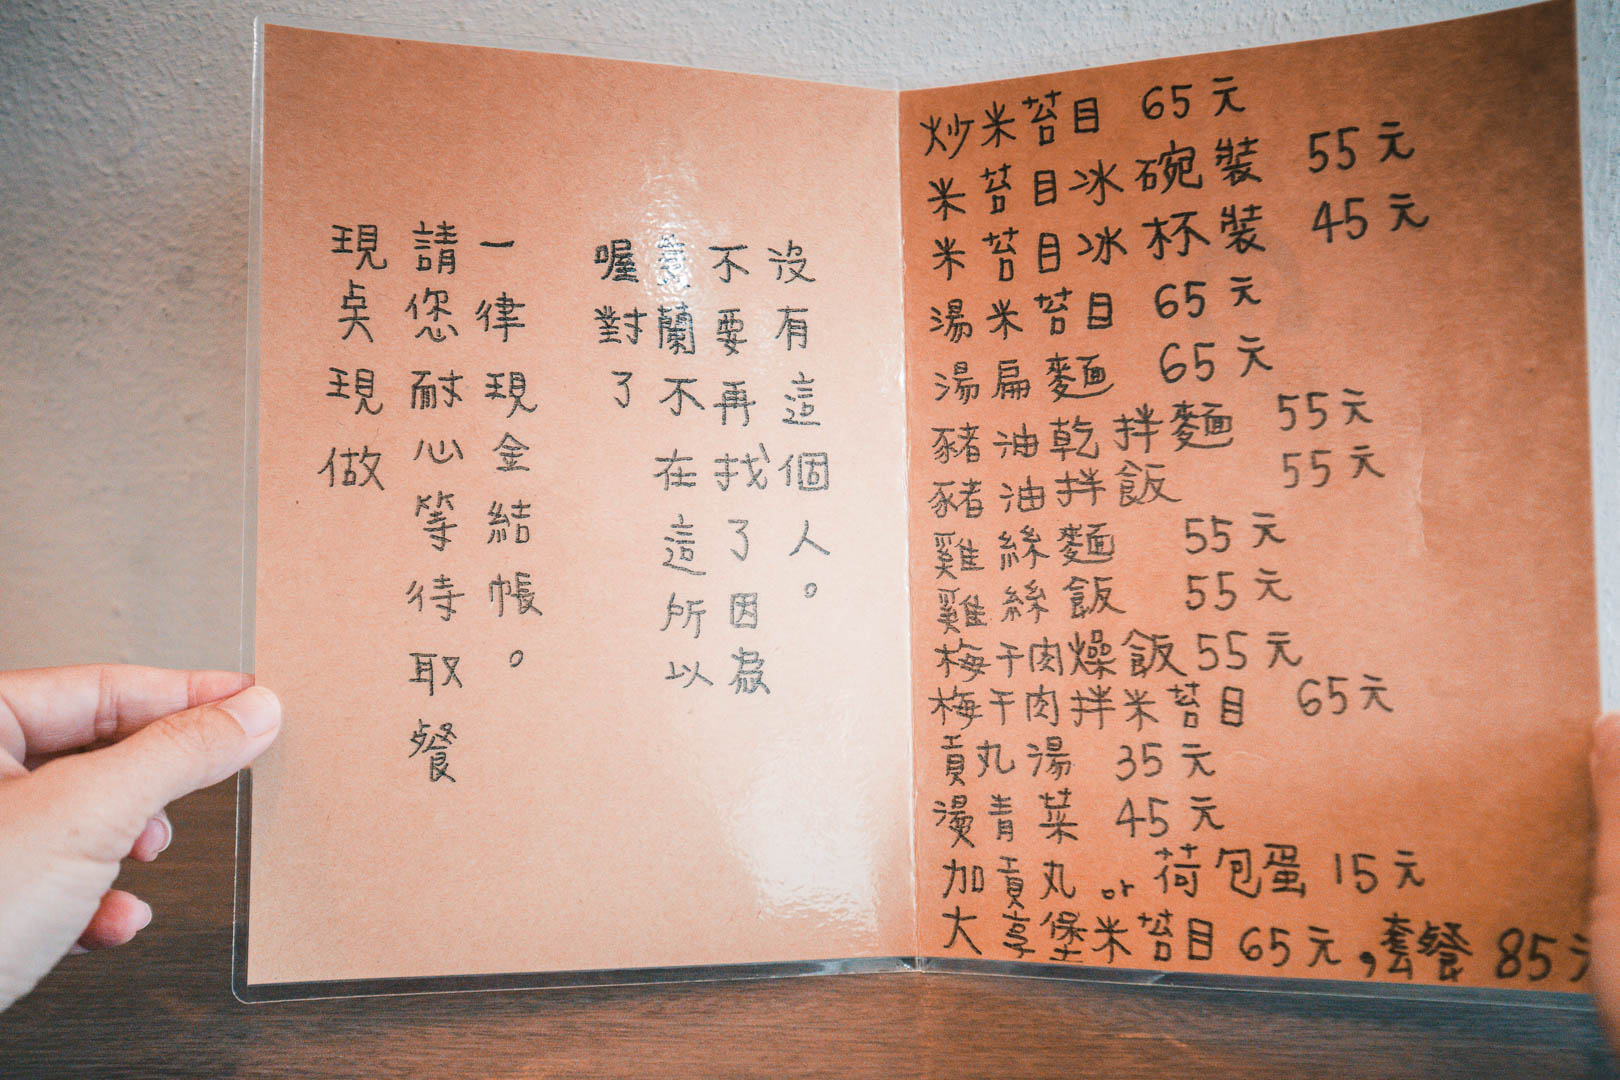 沒有這個人。
不要再找了因為
蘭不在這所以
喔對了
一律現金結帳。
請您耐心等待取餐
現奌現做
炒米苔目 65元
米苔目冰碗裝 55元
米苔目冰杯裝 45元
湯米苔目 65元
湯扁麵 65元
豬油乾拌麵 55元
豬油拌飯 55元
雞絲麵 55元
雞絲飯 55元
梅干肉燥飯 55元
梅干肉拌米苔目 65元
貢丸湯 35元
燙青菜 45元
加貢丸 or 荷包蛋 15元
大享堡米苔目 65元,套餐 85元